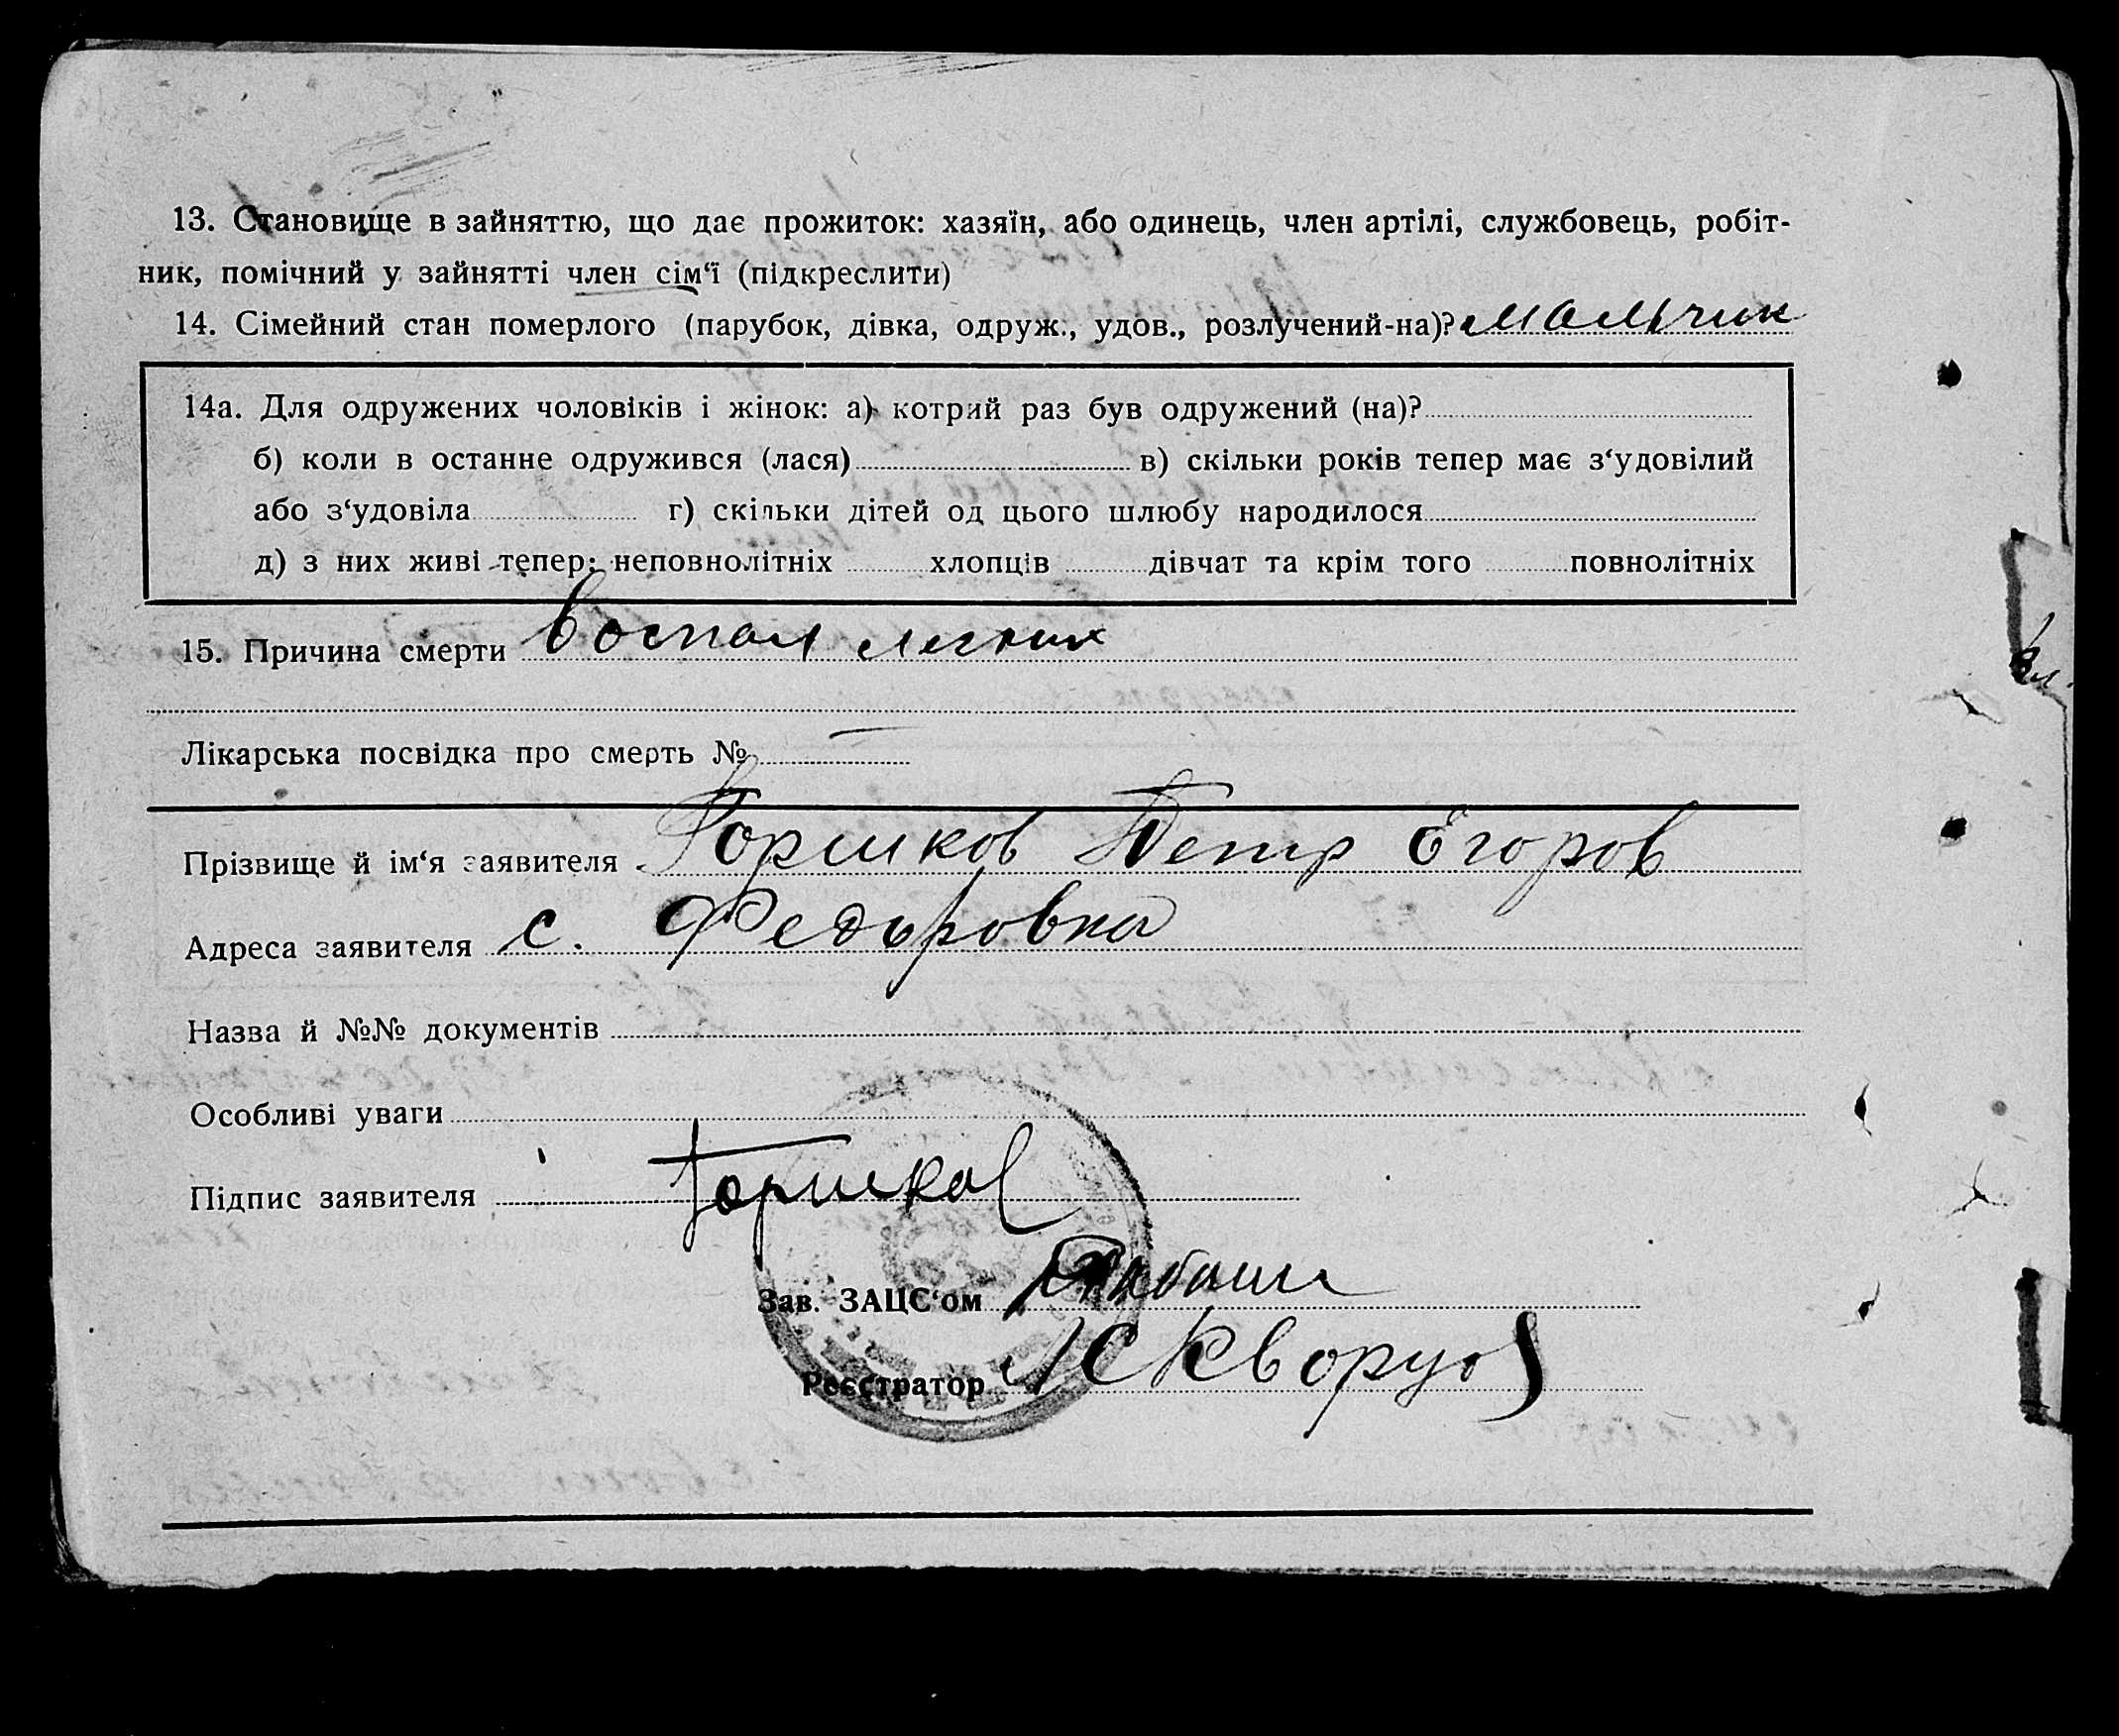 13. Становище в зайняттю, що дає прожиток: хазяїн, або одинець, член артілі, службовець, робіт-
ник, помічний у зайнятті член сім‘ї (підкреслити)
14. Сімейний стан померлого (парубок, дівка, одруж., удов., розлучений-на)? мальчик
14а. Для одружених чоловіків і жінок: а) котрий раз був одружений (на)?
б) коли в останне одружився (лася) в) скільки років тепер має з‘удовілий
або з‘удовіла г) скільки дітей од цього шлюбу народилося
д) з них живі тепер: неповнолітніх хлопців дівчат та крім того повнолітніх
15. Причина смерти воспал легких
Лікарська посвідка про смерть №
Прізвище й ім‘я заявителя Горшков Петр Егоров
Адреса заявителя с. Федоровка
Назва й №№ документів
Особливі уваги
Підпис заявителя Горшков
Зав. ЗАЦС‘ом
Реєстратор Скворцов